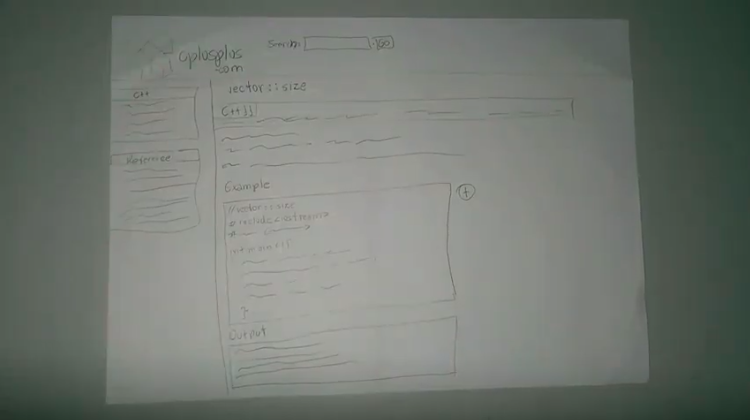 cplusplus
.com
Search: Go
C++
Reference
vector::size
C++11
Example
//vector::size
#include <iostream>
#
int main(){
}
Output